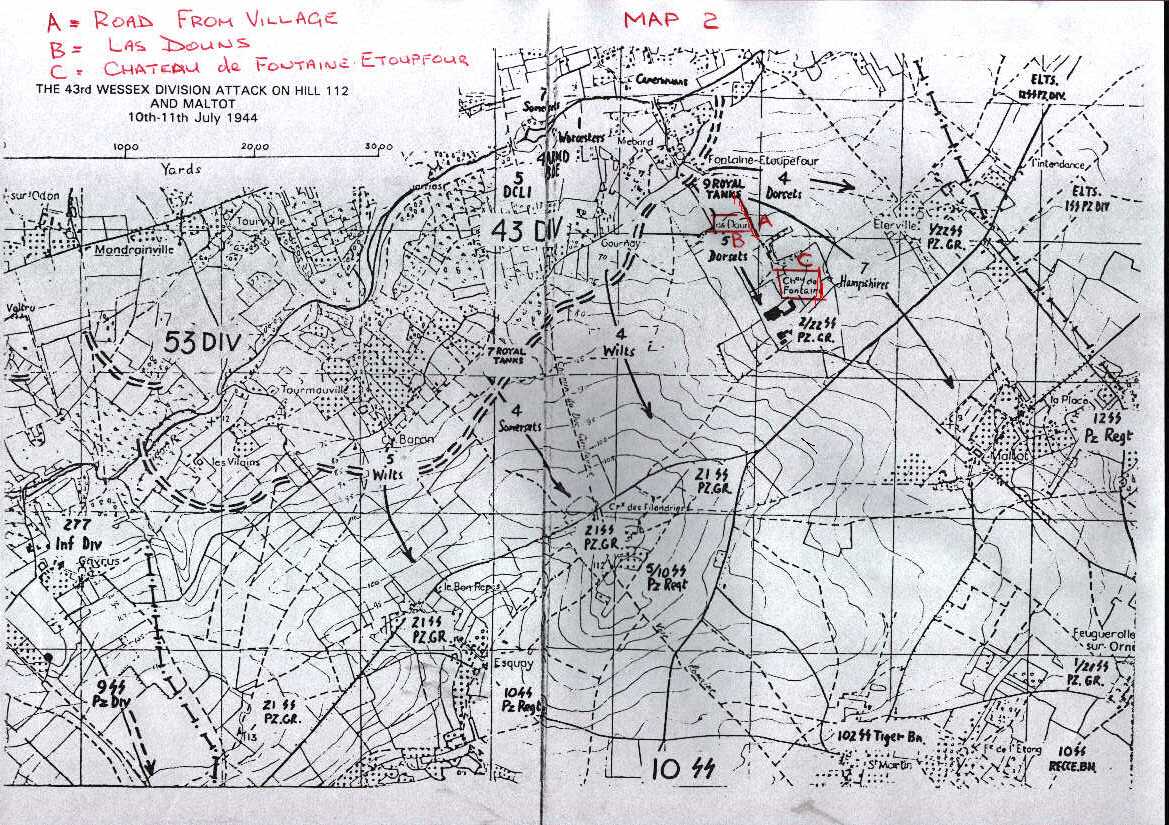 A = ROAD FROM VILLAGE
B = LAS DOUNS
C = CHATEAU de FONTAINE-ETOUPFOUR
MAP 2
THE 43rd WESSEX DIVISION ATTACK ON HILL 112
AND MALTOT
10th-11th July 1944
1000 2000 3000
Yards
Camerons
7
Somersets
1
Worcesters
4 ARMD
BDE
5
DCLI
43 DIV
Fontaine-Etoupefour
9 ROYAL
TANKS
4
Dorsets
A
B
5
Dorsets
C
Chau de
Fontaine
2/22 SS
PZ. GR.
7
Hampshires
ELTS.
12 SS PZ. DIV.
l'intendance
ELTS.
1 SS PZ DIV
Eterville
1/22 SS
PZ. GR.
sur-Odon
Mondrainville
Tourville
Gournay
53 DIV
Tourmauville
7 ROYAL
TANKS
4
Wilts
4
Somersets
Baron
5
Wilts
les Vilains
la Place
12 SS
Pz Regt
Maltot
21 SS
PZ.GR.
Crx des Filandriers
21 SS
PZ.GR.
112
5/10 SS
Pz Regt
277
Inf Div
Gavrus
le Bon Repos
21 SS
PZ.GR.
Esquay
10 SS
Pz Regt
9 SS
Pz Div
21 SS
PZ.GR.
113
10 SS
102 SS Tiger Bn.
St Martin
Fe de l'Etang
Feuguerolles
sur-Orne
1/21 SS
PZ. GR.
10 SS
RECCE. BN.